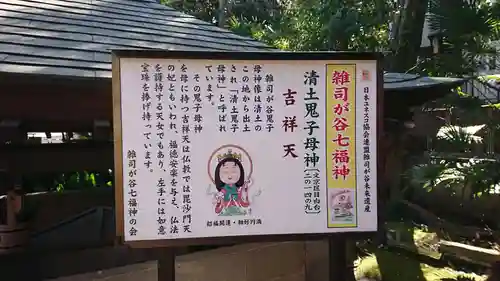 日本ユネスコ協会連盟雑司が谷未来遺産
雑司が谷七福神
清土鬼子母神
(文京区目白台
二の一四の九)
吉祥天
雑司が谷鬼子
母神像は清土の
この地から出土
され「清土鬼子
母神」と呼ばれ
ています。
その鬼子母神
を母に持つ吉祥天は仏教では毘沙門天
の妃ともいわれ、福徳安楽を与え、仏法
を護持する天女でもあり、左手には如意
宝珠を捧げ持っています。
雑司が谷七福神の会